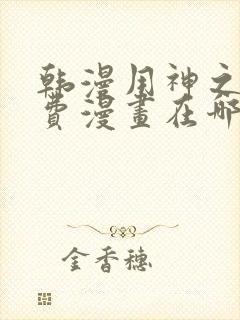 韩漫周神之
费漫畫在哪
金香穗